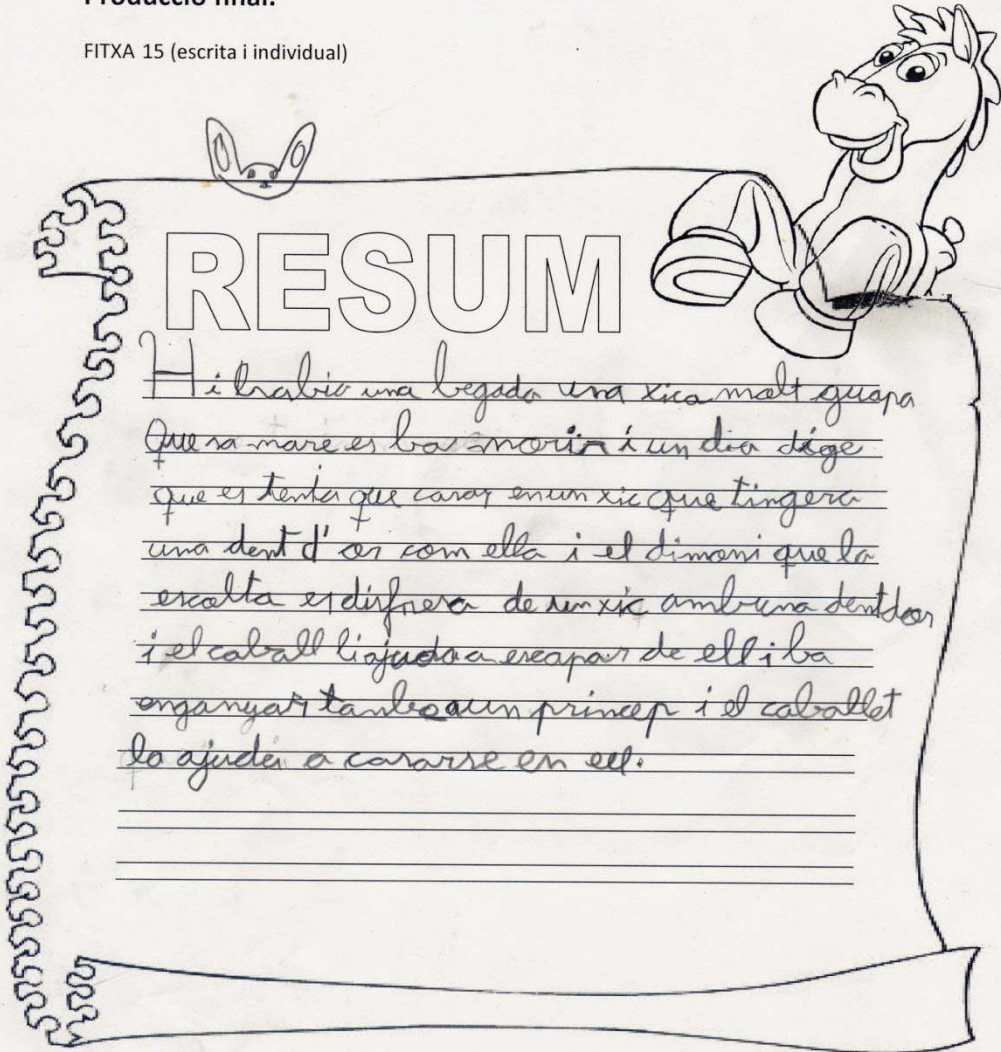 Producció final:
FITXA 15 (escrita i individual)
RESUM
Hi habia una begada una xica molt guapa
que sa mare es ba morir i un dia dige
que es tenia que casar en un xic que tingera
una dent d'or com ella i el dimoni que la
escolta es disfresa de un xic amb una dent dor
i el caball li ajuda a escapar de ell i ba
enganyar tambe a un princep i el caballet
la ajuda a casarse en ell.